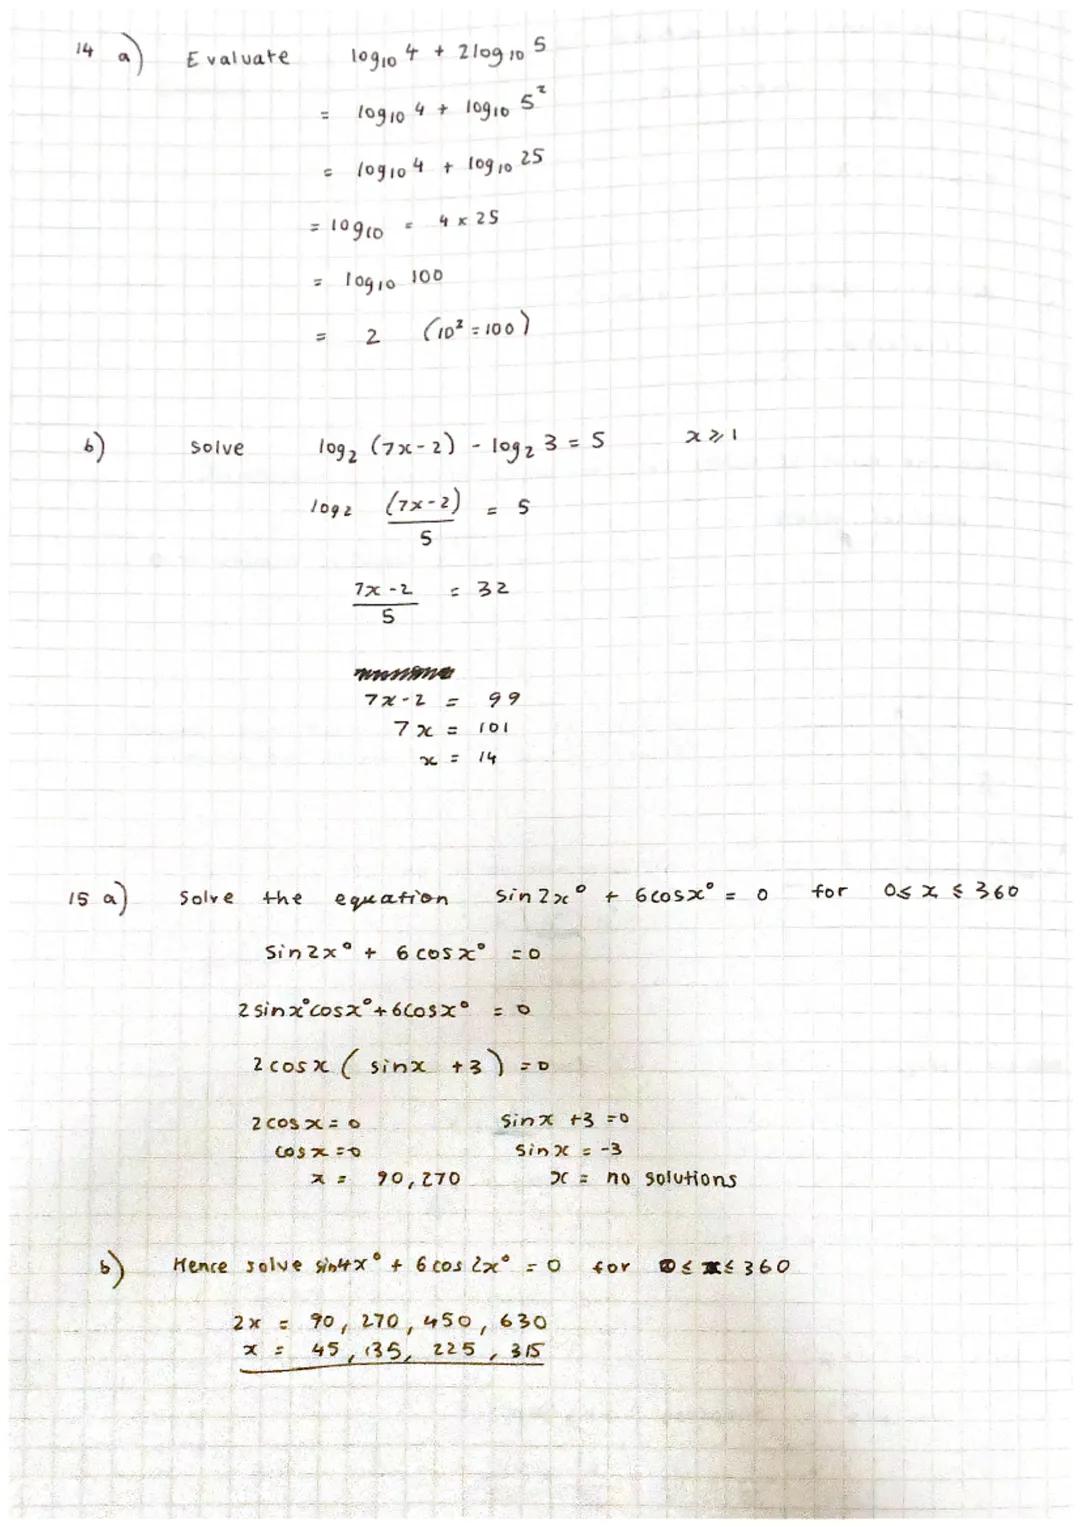 14 a) Evaluate log₁₀ 4 + 2log₁₀ 5
= log₁₀ 4 + log₁₀ 5²
= log₁₀ 4 + log₁₀ 25
= log₁₀ = 4 x 25
= log₁₀ 100
= 2 (10² = 100)
b) Solve log₂ (7x-2) - log₂ 3 = 5 x ⩾ 1
log₂ (7x-2)/5 = 5
7x-2/5 = 32
7x-2 = 99
7x = 101
x = 14
15 a) Solve the equation sin2x° + 6cosx° = 0 for 0≤ x ≤ 360
Sin2x° + 6cosx° = 0
2sinx°cosx° + 6cosx° = 0
2cosx (sinx +3) = 0
2cosx = 0 Sinx +3 = 0
cosx = 0 Sinx = -3
x = 90, 270 x = no solutions
b) Hence solve sin4x° + 6cos2x° = 0 for 0≤ x ≤ 360
2x = 90, 270, 450, 630
x = 45, 135, 225, 315